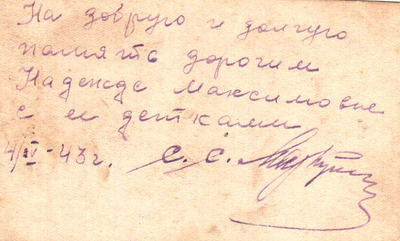 На добрую и долгую
память дорогим
Надежде Максимовне
с ее детками
4/IV-43г. С. С.